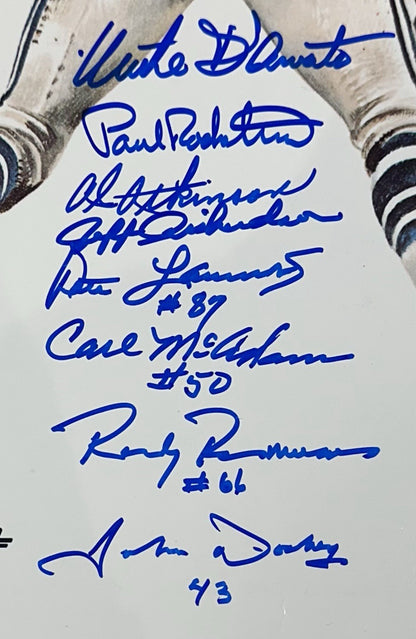 Mike D'Amato
Paul Rochester
Al Atkinson
Jeff Richardson
Pete Lammons
#87
Carl McAdams
#50
Randy Rasmussen
#66
John Dockery
43